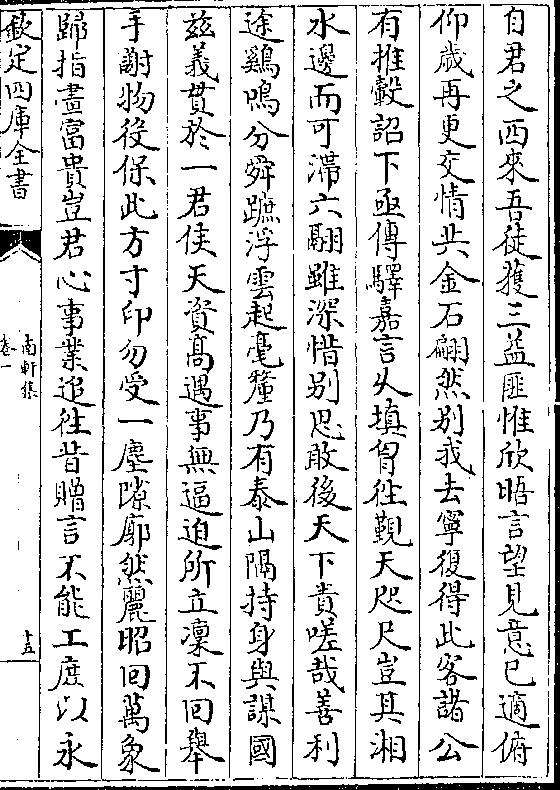 自君之西來吾徒獲三益匪惟欣晤言望見意已適俯
仰歲再更交情共金石翩然别我去寧復得此客諸公
有推轂詔下亟傳驛嘉言久填胷往覲天咫尺豈其湘
水邊而可滯六翮雖深惜别思敢後天下責嗟哉善利
途鷄鳴分舜蹠浮雲起毫釐乃有泰山隔持身與謀國
兹義貫於一君侯天資髙遇事無逼迫所立凛不回舉
手謝物役保此方寸印勿受一塵隙廓然麗昭回萬象
歸指畫富貴豈君心事業追往昔贈言不能工庶以永
欽定四庫全書
南軒集
卷一
十五